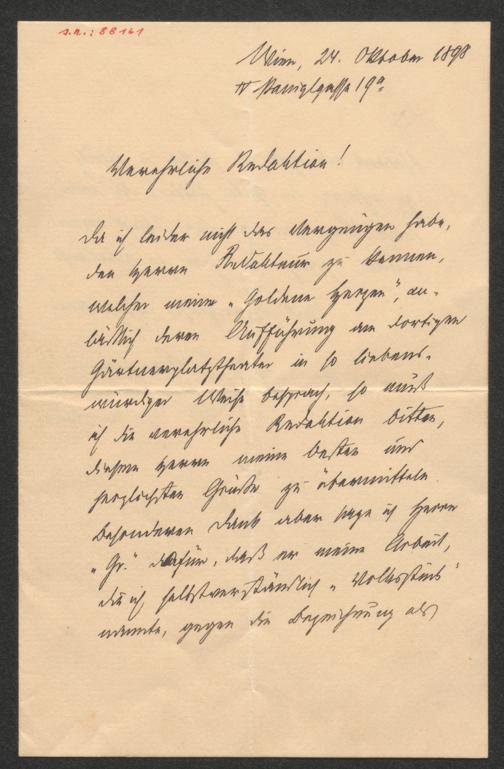 s.n.: 88161
Wien, 24. Oktober 1898
IV Paniglgasse 19a.
Verehrliche Redaktion!
Da ich leider nicht das Vergnügen habe,
den Herrn Redakteur zu kennen,
welcher meine „Goldene Herzen", an-
läßlich deren Aufführung am dortigen
Gärtnerplatztheater in so liebens-
würdiger Weise besprach, so muß
ich die verehrliche Redaktion bitten,
diesem Herrn meine besten und
herzlichsten Grüße zu übermitteln.
Besonderen Dank aber sage ich Herrn
„Gr." dafür, daß er meine Arbeit,
die ich selbstverständlich „Volksstück"
nannte, gegen die Bezeichnung als